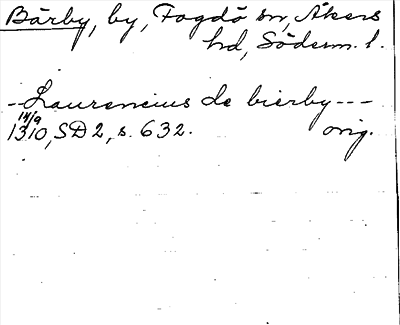 Bärby, by, Fogdö sn, Åkers
hd, Söderm. l.
--Laurencius de bierby---
14/9
1310, SD 2, s. 632. orig.